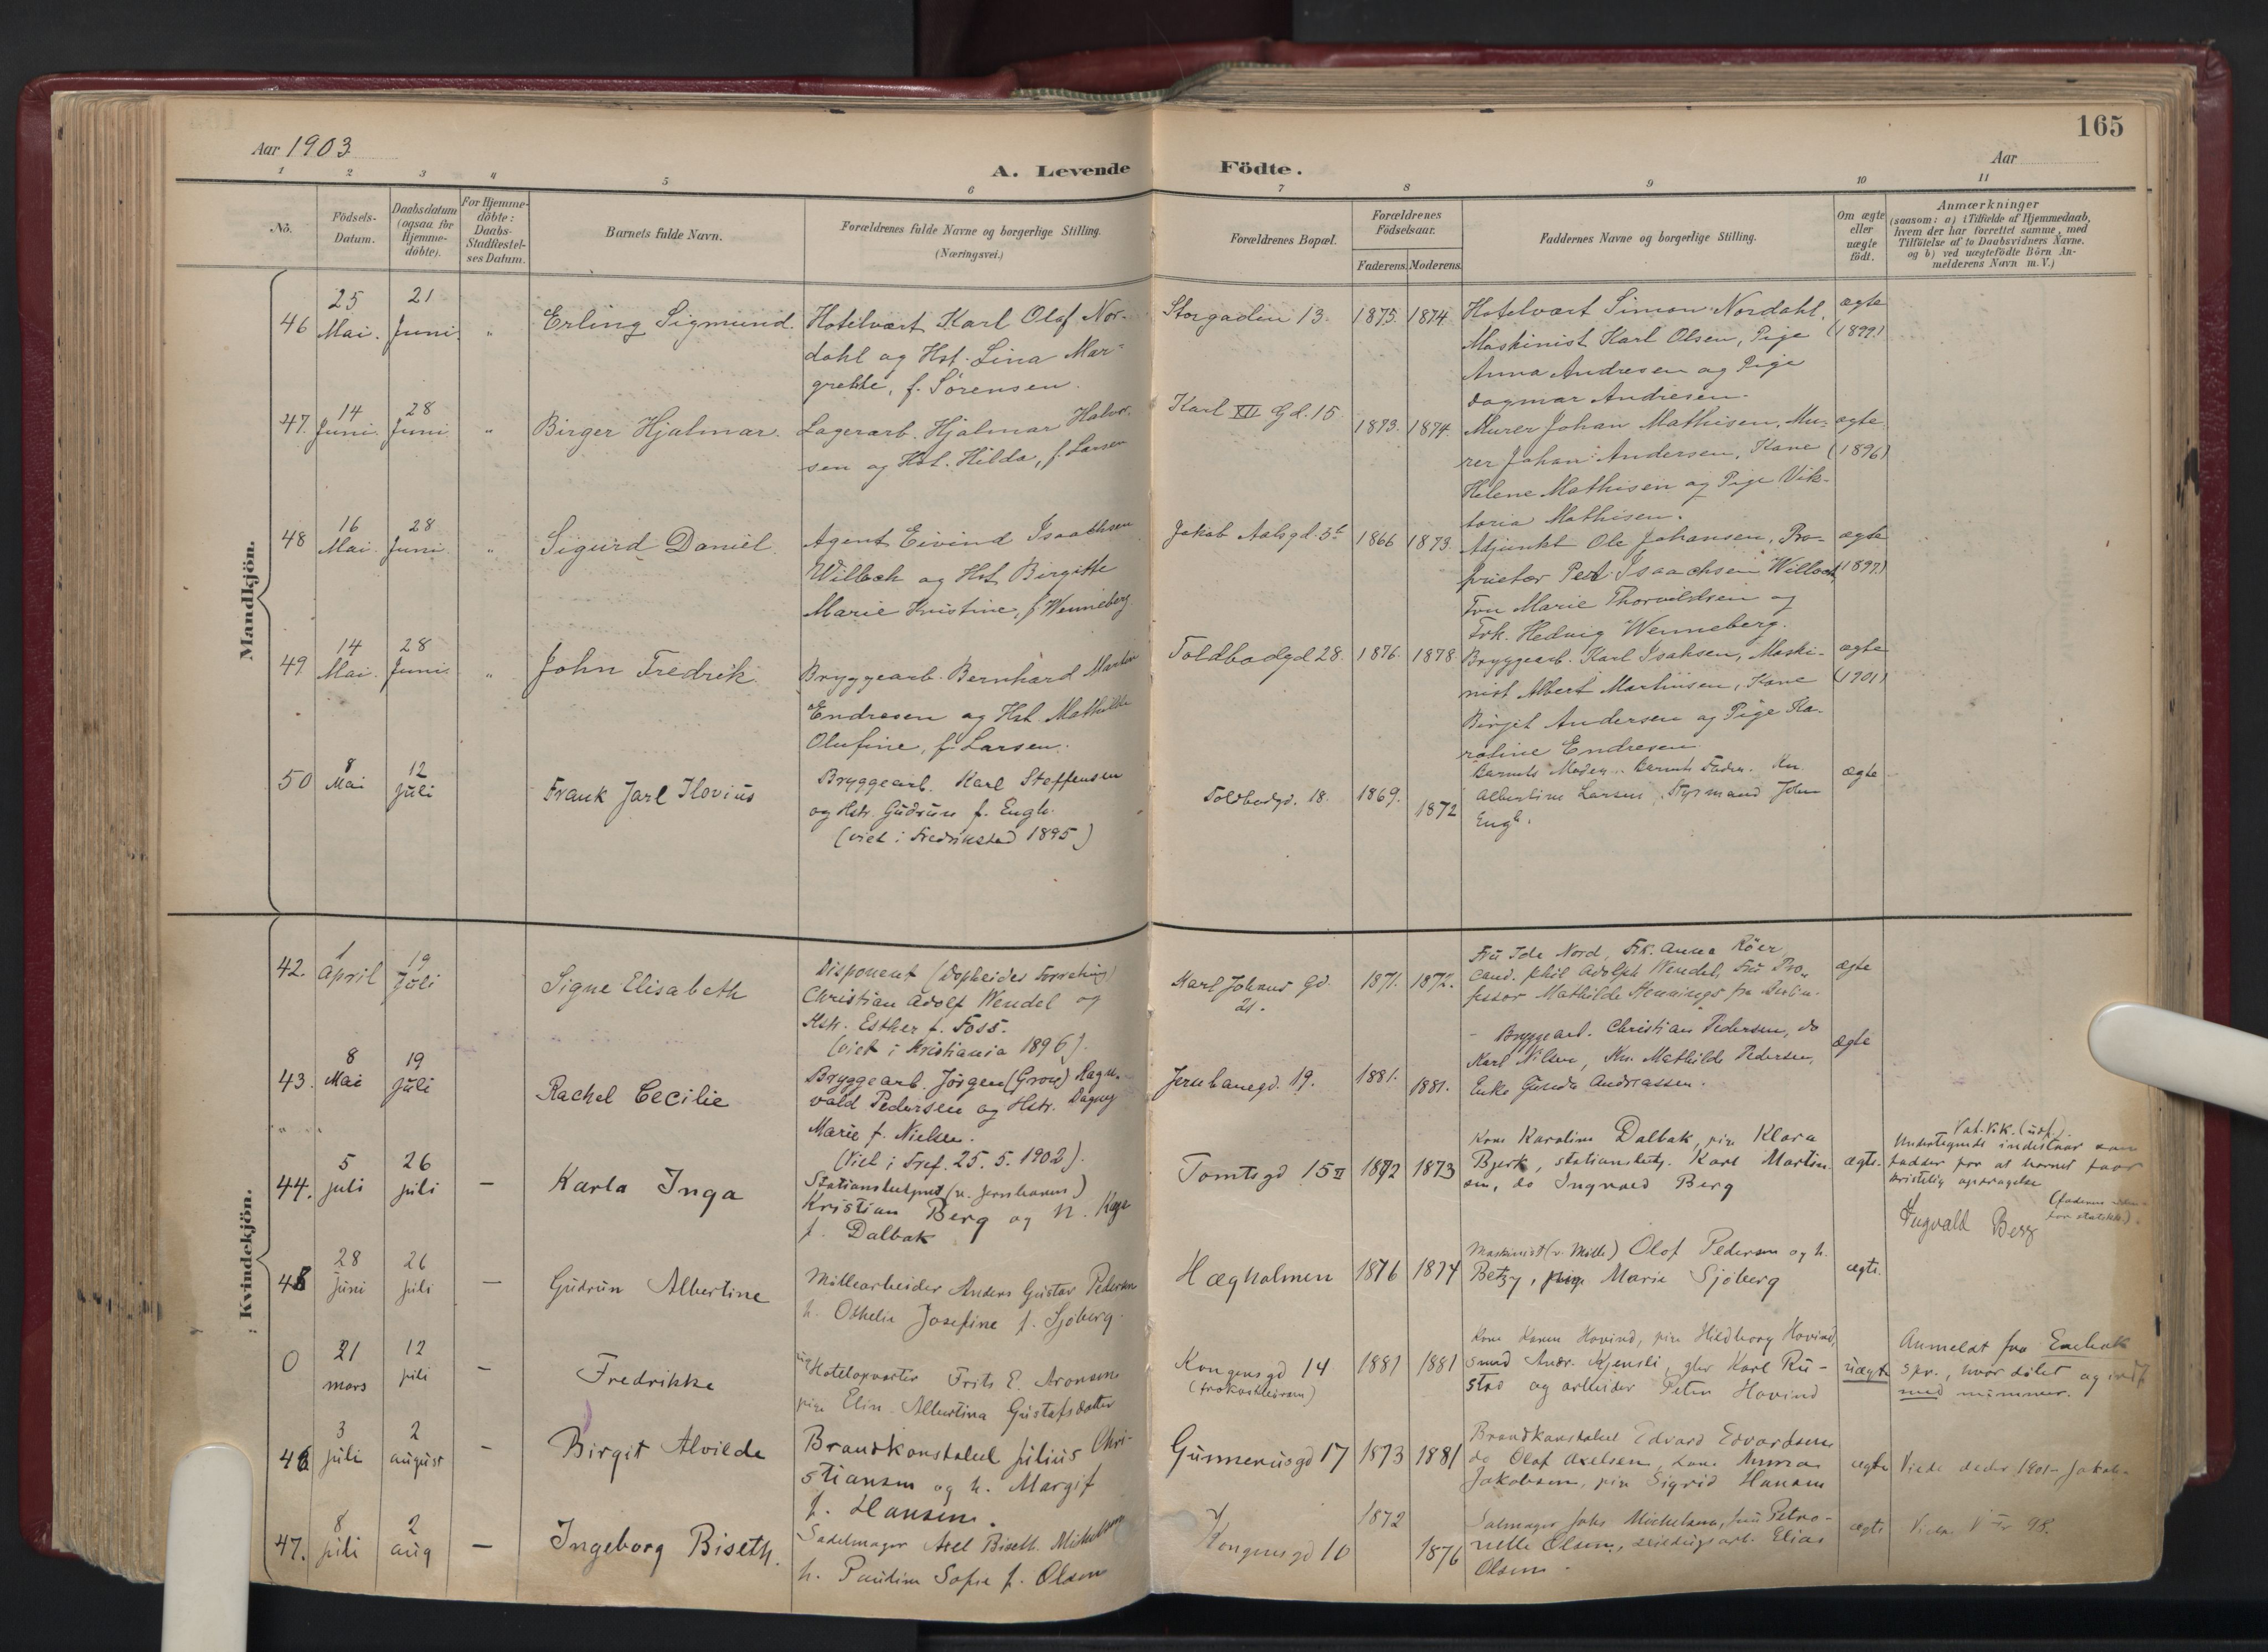 165
Aar 1903
Aar
A. Levende Födte.
1 2 3 4 5 6 7 8 9 10 11
No.
Födsels-
Datum.
Daabsdatum
(ogsaa for
Hjemme-
döbte).
For Hjemme-
döbte:
Daabs-
Stadfæstel-
ses Datum.
Barnets fulde Navn.
Forældrenes fulde Navne og borgerlige Stilling.
(Næringsvei.)
Forældrenes Bopæl.
Forældrenes
Födselsaar.
Faderens. Moderens.
Faddernes Navne og borgerlige Stilling.
Om ægte
eller
uægte
födt.
Anmærkninger
(saasom: a) i Tilfælde af Hjemmedaab,
hvem der har forrettet samme, med
Tilföielse af to Daabsvidners Navne.
og b) ved uægtefödte Börn An-
melderens Navn m. V.)
Mandkjön.
46
25
Mai.
21
Juni.
"
Erling Sigmund.
Hotelvært Karl Olaf Nor-
dahl og Hst. Lina Mar-
grethe, f. Sørensen.
Storgaden 13.
1875. 1874.
Hotelvært Simon Nordahl,
Maskinist Karl Olsen, Pige
Anna Andresen og Pige
Dagmar Andresen.
ægte
(1899)
47.
14
Juni.
28
Juni
"
Birger Hjalmar.
Lagerarb. Hjalmar Halvor-
sen og Hst. Hilda, f. Larsen
Karl XII Gd. 15
1873. 1874.
Murer Johan Mathisen, Mu-
rer Johan Andersen, Kone
Helene Mathisen og Pige Vik-
toria Mathisen.
ægte
(1896)
48
16
Mai.
28
Juni
"
Sigurd Daniel
Agent Eivind Isaachsen
Willoch og Hst Birgitte
Marie Kristine, f. Wenneberg.
Jakob Aalsgd.
1866 1873.
Adjunkt Ole Johansen, Pro-
prietær Peter Isaachsen Willoch
Fru Marie Thorvildsen og
Frk. Hedvig Wenneberg.
ægte
49
14
Mai.
28
Juni.
"
John Fredrik
Bryggearb. Bernhard Martin
Endresen og Hst. Mathilde
Olufine, f. Larsen.
Toldbodgd 28.
1876. 1878
Bryggearb. Karl Isaksen, Maski-
nist Albert Martinsen, Kone
Birgit Andersen og Pige Ka-
roline Endresen
ægte
(1901)
50
8
Mai
12
Juli
Frank Jarl Ilovius
Bryggearb. Karl Steffensen
og Hstr. Gudrun f. Engh.
(viet i Fredrikstad 1895)
Toldbodgd. 18.
1869.
1872
Barnets Moder. Barnets Fader. Kn.
Albertine Larsen, Styrmand John
Engh.
ægte
Kvindekjön.
42.
1
April
19
Juli
Signe Elisabeth
Disponent
Christian Adolf Wendel og
Hstr. Esther f. Foss.
(viet i Kristiania 1896).
Karl Johans Gd.
21.
1871. 1872.
Fru Ida Nord, Frk. Anna Röer,
Cand. phil Adolph Wendel, Fru Pro-
fessor Mathilde Hennings fra Berlin.
ægte
43.
8
Mai
19
Juli
Rachel Cecilie
Bryggearb. Jörgen (Grow) Ragn-
vald Pedersen og Hstr. Dagny
Marie f. Nielsen.
(Viet i Fref. 25. 5. 1902).
Jernbanegd. 19.
1881.
1881.
Bryggearb. Christian Pedersen, do
Karl Nilsen, Kn. Mathilde Pedersen,
Enke Gunda Andreassen.
ægte
44.
5
juli
26
juli
—
Karla Inga
Stationsbetjent (v. jernbanen)
Kristian Berg og h. Kaja
f. Dalbak
Tomtegd 15 II
1872 1873
Kone Karoline Dalbak, pige Klara
Bjerk, stationsbetj. Karl Martin-
sen, do Ingvald Berg
ægte.
Undertegnede indestaar som
fadder for at barnet faar
kristelig opdragelse
Ingvald Berg
45
28
Juni
26
juli
—
Gudrun Albertine
Möllearbeider Anders Gustav Pedersen
h. Othelie Josefine f. Sjöberg.
Hægholmen
1876 1874
Maskinist (v. Mölle) Olof Pedersen og h.
Betzy, pige Marie Sjöberg
ægte.
0
21
mars
12
juli
—
Fredrikke
Hotelopvarter Frits E. Aronsen
pige Elin Albertina Gustafsdatter
Kongensgd 14
1881 1881
Kone Karen Hovind, pige Hildborg Hovind,
smed Andr. Kjensli, Karl Ru-
stad og arbeider Peter Hovind
uægte
Anmeldt fra Enebak
spr., hvor döbt og indf
med nummer.
46
3
juli
2
august
—
Birgit Alvilde
Brandkonstabel Julius Chri-
stiansen og h. Margit
f. Hansen.
Gunnerusgd 17
1873 1881
Brandkonstabel Edvard Edvardsen
do Olaf Axelsen, kone Anna
Jakobsen, pige Sigrid Hansen
ægte
47.
8
juli
2
aug
—
Ingeborg Biseth.
Sadelmager Axel Biseth Mickelsen
h. Pauline Sofie f. Olsen
Kongensgd 10
1872
1876
Salmager Johs Mickelsen, fru Petro-
nelle Olsen, arb. Elias
Olsen.
ægte